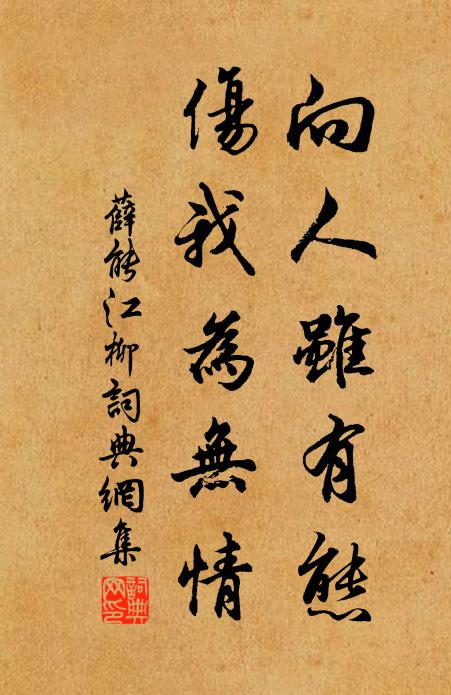 向人雖有態
傷我為無情
薛能江柳詞典網集
詞典
网印